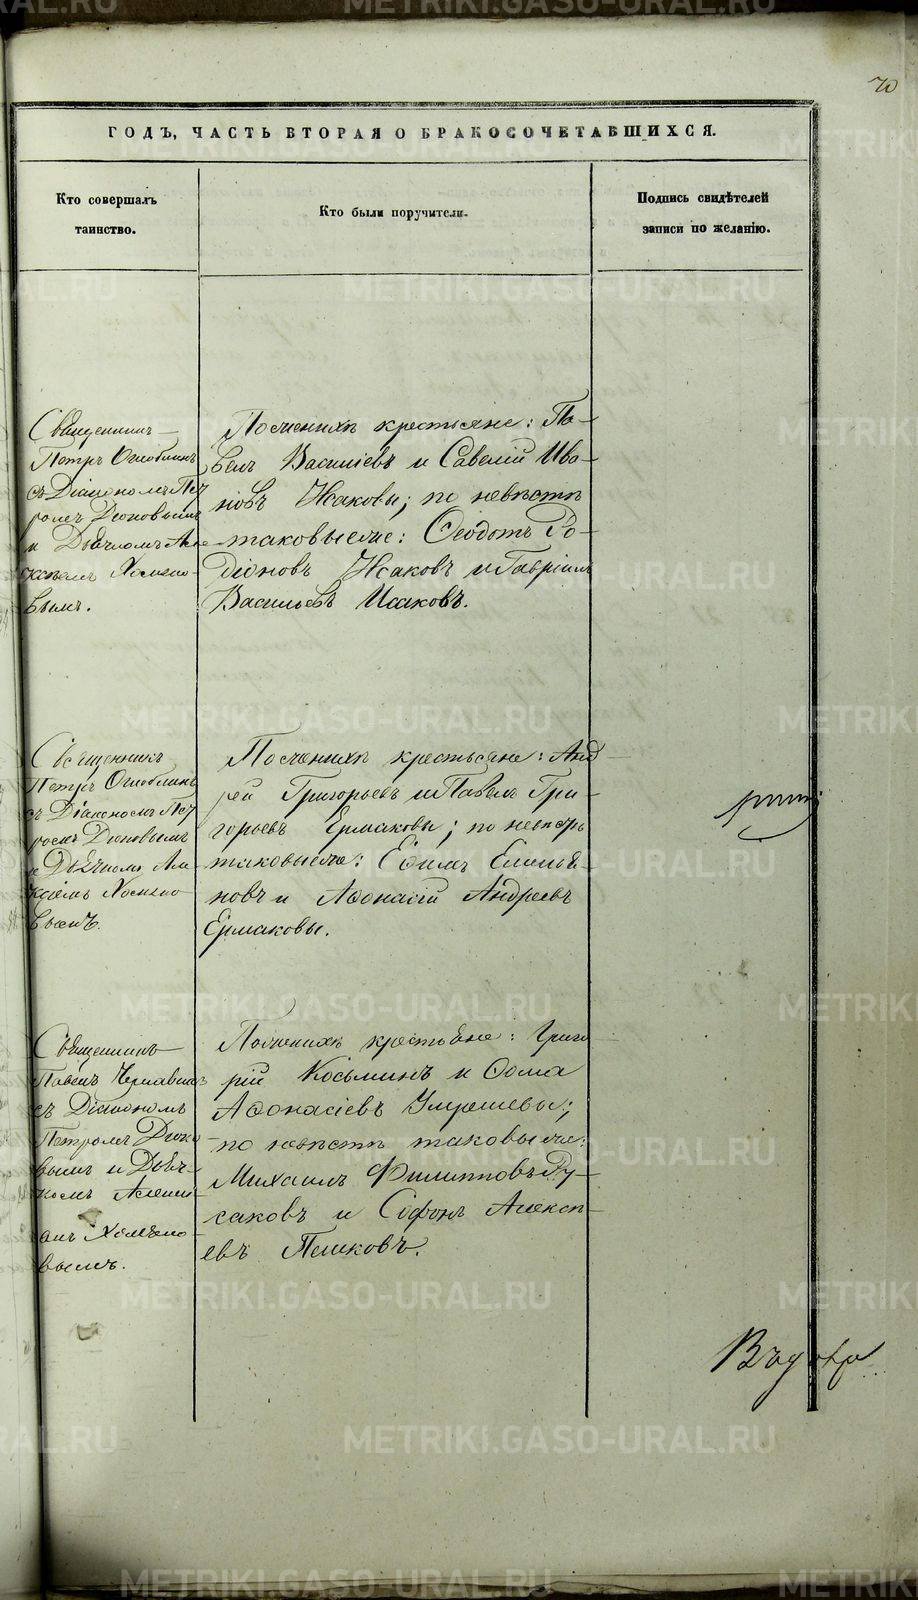 70
ГОДЪ, ЧАСТЬ ВТОРАЯ О БРАКОСОЧЕТАВШИХСЯ.
Кто совершалъ
таинство.
Кто были поручители.
Подпись свидѣтелей
записи по желанію.
Священникъ
Петръ Оглоблинъ
съ Діакономъ Пет
ромъ Дюковымъ
и Дьячкомъ Але
ксѣемъ Хомяко-
вымъ.
По женихѣ крестьяне: Па-
велъ Василіевъ и Савелій Ива-
новъ Исаковы; по невѣстѣ
таковые же: Ѳеодотъ Ро-
діоновъ Исаковъ и Гавріилъ
Васильевъ Исаковъ.
Священникъ
Петръ Оглоблинъ
съ Діакономъ Пет
ромъ Дюковымъ
и Дьячкомъ Але
ксѣемъ Хомяко
вымъ.
По женихѣ крестьяне: Анд
рей Григорьевъ и Павелъ Гри-
горьевъ Ермаковы; по невѣстѣ
таковые же: Ефимъ Емелья
новъ и Афонасій Андреевъ
Ермаковы.
Священникъ
Павелъ
съ Діакономъ
Петромъ Дюко
вымъ и Дьяч-
комъ
Хомяко-
вымъ.
По женихѣ крестьяне: Григо
рій Косьминъ и Ѳома
Афонасіевъ
по невѣстѣ таковые же:
Михаилъ Филипповъ Ру-
саковъ и Софонъ Алексѣ-
евъ Пешковъ.
METRIKI.GASO-URAL.RU